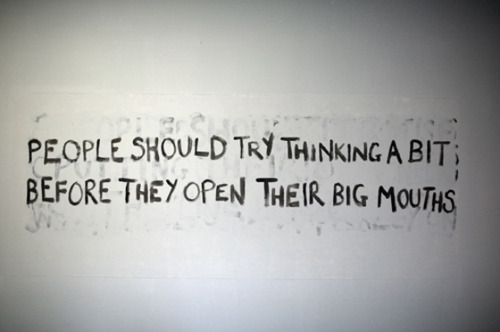 PEOPLE SHOULD TRY THINKING A BIT
BEFORE THEY OPEN THEIR BIG MOUTHS